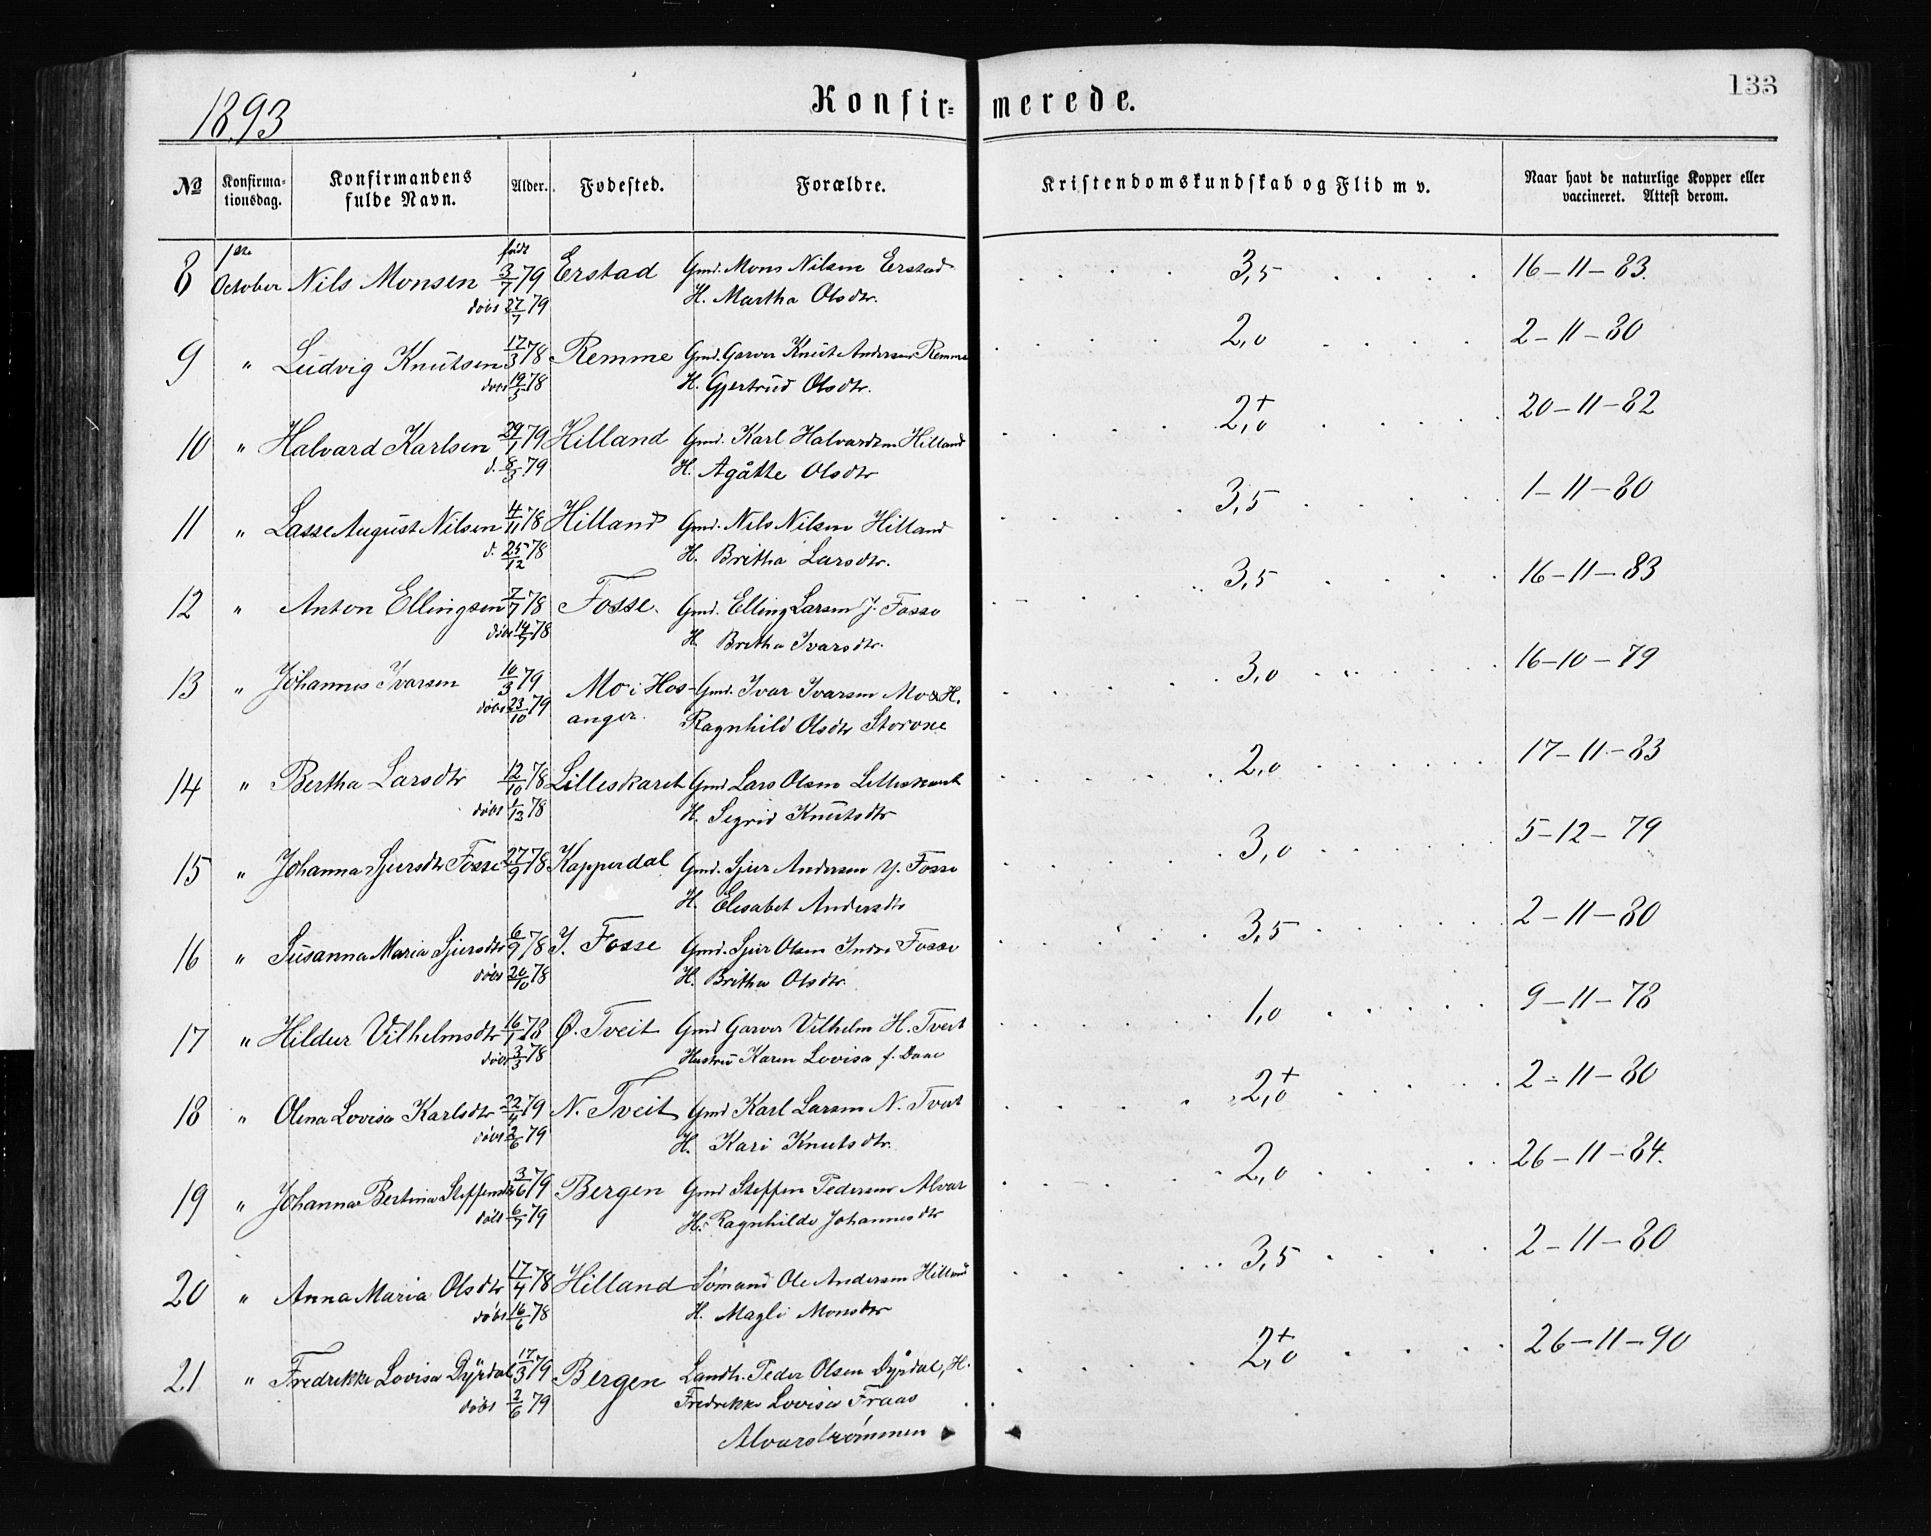 1893 Konfir- merede. 133
№ Konfirma-tionsdag. Konfirmandens fulde Navn. Alder. Fødested. Forældre. Kristendomskundskab og Flid m v. Naar havt de naturlige Kopper eller vaccineret. Attest derom.
8 1ste October Nils Monsen født 3/7 79 Erstad Gmd. Mons Nilsen Erstad 3,5 16-11-83.
døbt 27/7 79 H. Martha Olsdtr.
9 " Ludvig Knutsen 17/3 78 Remme Gmd. Garver Knut Andersen Remme 2,0 2-11-80
døbt 19/5 78 H. Gjertrud Olsdtr.
10 " Halvard Karlsen 29/1 79 Hilland Gmd. Karl Halvardsen Hilland 2,0+ 20-11-82
d. 8/3 79 H. Agåtte Olsdtr
11 " Lasse August Nilsen 4/11 78 Hilland Gmd. Nils Nilsen Hilland 3,5 1-11-80
d. 25/12 78 H. Britha Larsdtr.
12 " Anton Ellingsen 7/7 78 Fosse. Gmd. Elling Larsen J. Fosse 3,5 16-11-83
døbt 14/7 78 H. Britha Ivarsdtr.
13 " Johannes Ivarsen 10/3 79 Mo i Hos- Gmd. Ivar Ivarsen Mo & H. 3,0 16-10-79
døbt 23/10 79 anger. Ragnhild Olsdtr Storoxe
14 " Bertha Larsdtr 12/10 78 Lilleskaret Gmd Lars Olsen Lilleskaret 2,0 17-11-83
døbt 1/12 78 H. Sigrid Knutsdtr
15 " Johanna Sjursdtr Fosse 27/9 78 Kapperdal Gmd. Sjur Andersen Y. Fosse 3,0 5-12-79
H. Elisabet Andersdtr
16 " Susanna Maria Sjursdtr 6/9 78 I. Fosse Gmd. Sjur Olsen Indre Fosse 3,5 2-11-80
døbt 20/10 78 H. Britha Olsdtr.
17 " Hildur Vilhelmsdtr 16/1 78 Ø. Tveit Gmd Garver Vilhelm H. Tveit 1,0 9-11-78
døbt 3/3 78 Hustru Karen Lovisa f. Daae
18 " Olina Lovisa Karlsdtr 22/4 79 N. Tveit Gmd Karl Larsen N. Tveit 2,0+ 2-11-80
døbt 2/6 79 H. Kari Knutsdtr.
19 " Johanna Bertina Steffensdtr 3/6 79 Bergen Gmd Steffen Pedersen Alver 2,0 26-11-84.
døbt 6/7 79 H. Ragnhilde Johannesdtr
20 " Anna Maria Olsdtr 17/4 78 Hilland Sømand Ole Andersen Hilland 3,5 2-11-80
døbt 16/6 78 H. Magli Monsdtr
21 " Fredrikke Lovisa Dyrdal 17/3 79 Bergen Landh. Peder Olsen Dyrdal, H. 2,0+ 26-11-90
døbt 2/6 79 Fredrikke Lovisa Fraas
Alverstrømmen